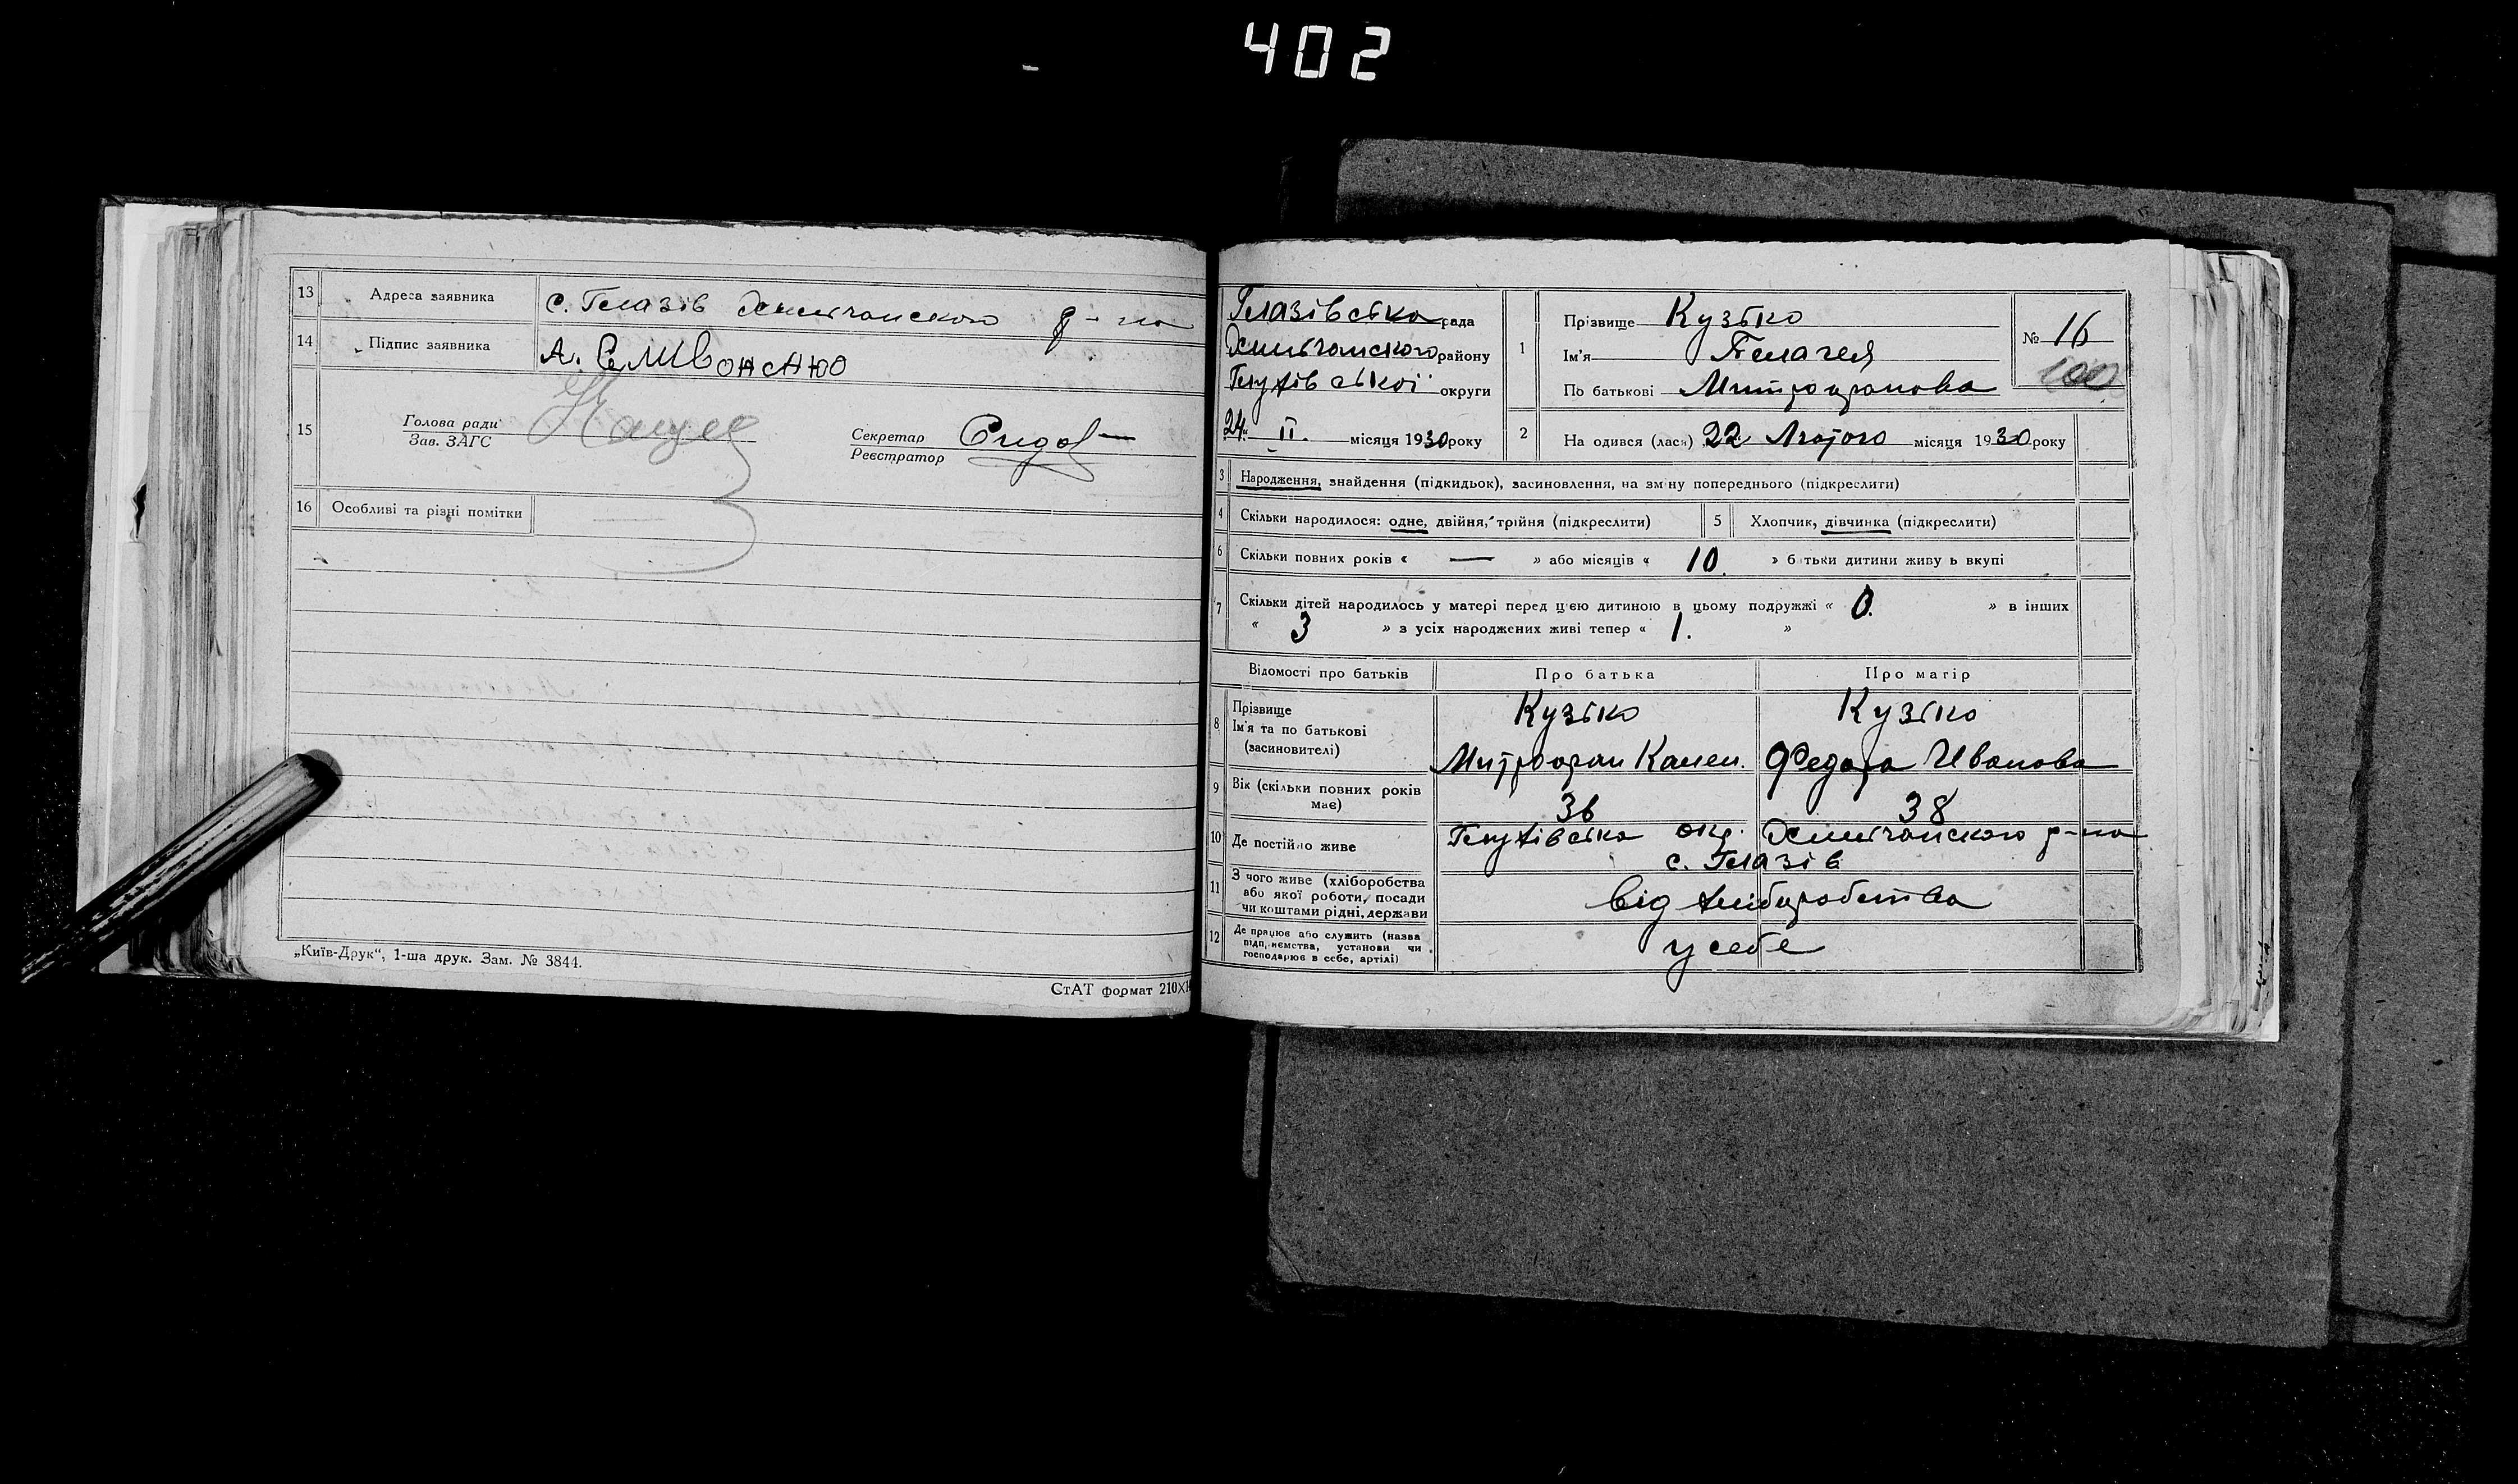 402
13 Адреса заявника с. Глазів Хильчанского р-на
14 Підпис заявника А. Сливонсню
15 Голова ради
Зав. ЗАГС
Секретар
Реєстратор
16 Особливі та різні помітки
„Київ-Друк“, 1-ша друк. Зам. № 3844.
СтАТ формат 210×
Глазівська рада
Хильчанского району
Глухівської округи
24 II. місяця 1930 року
1 Прізвище Кузько
Ім'я Пелагея
По батькові Митрофанова
№ 16
100
2 На одився (лася) 22 Лютого місяця 1930 року
3 Народження, знайдення (підкидьок), засиновлення, на зміну попереднього (підкреслити)
4 Скільки народилося: одне, двійня, трійня (підкреслити) 5 Хлопчик, дівчинка (підкреслити)
6 Скільки повних років « — » або місяців « 10. » батьки дитини живуть вкупі
7 Скільки дітей народилось у матері перед цією дитиною в цьому подружжі « 0. » в інших
« 3 » з усіх народжених живі тепер « 1. »
Відомості про батьків Про батька Про матір
8 Прізвище Кузько Кузько
Ім'я та по батькові
(засиновителі) Митрофан Камен. Федора Иванова
9 Вік (скільки повних років
має) 36 38
10 Де постійно живе Глухівська окр. Хильчанского р-на
с. Глазів
11 З чого живе (хліборобства
або якої роботи, посади
чи коштами рідні, держави від хліборобства
12 Де працює або служить (назва
підприємства, установи чи
господарює в себе, артілі) у себе